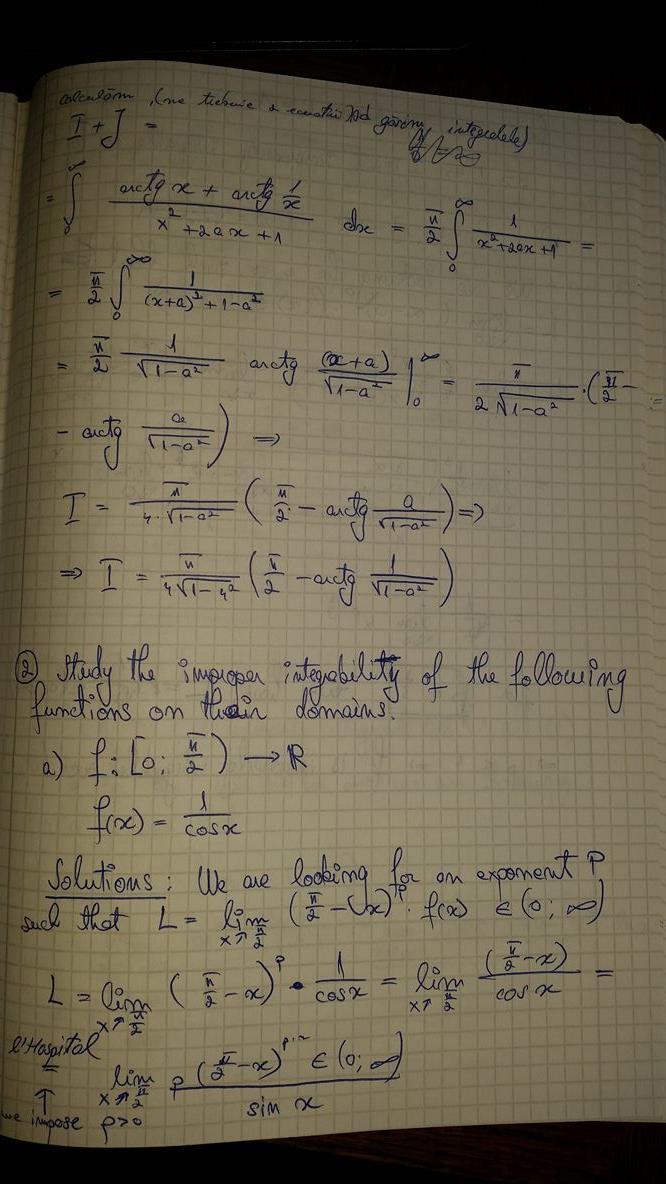 calculăm, (ne trebuie 2 ecuatii) să găsim integralele)
I + J =
= ∫₀^∞ (arctg x + arctg 1/x)/(x² + 2ax + 1) dx = π/2 ∫₀^∞ 1/(x²+2ax+1) =
= π/2 ∫₀^∞ 1/((x+a)² + 1-a²)
= π/2 1/√(1-a²) arctg (x+a)/√(1-a²) |₀^∞ = π/(2√(1-a²)) · (π/2 - =
- arctg a/√(1-a²)) ⇒
I = π/(4·√(1-a²)) (π/2 - arctg a/√(1-a²)) ⇒
⇒ I = π/(4√(1-4²)) (π/2 - arctg 1/√(1-a²))
② Study the improper integrability of the following
functions on their domains.
a) f: [0; π/2) → R
f(x) = 1/cosx
Solutions: We are looking for an exponent P
such that L = lim x↗π/2 (π/2 - x)^P · f(x) ∈ (0; ∞)
L = lim x↗π/2 (π/2 - x)^P · 1/cosx = lim x↗π/2 (π/2 - x)/cosx =
l'Hospital
= lim x↗π/2 p(π/2 - x)^(p-1) ∈ (0; ∞) / sin x
↑
we impose p>0